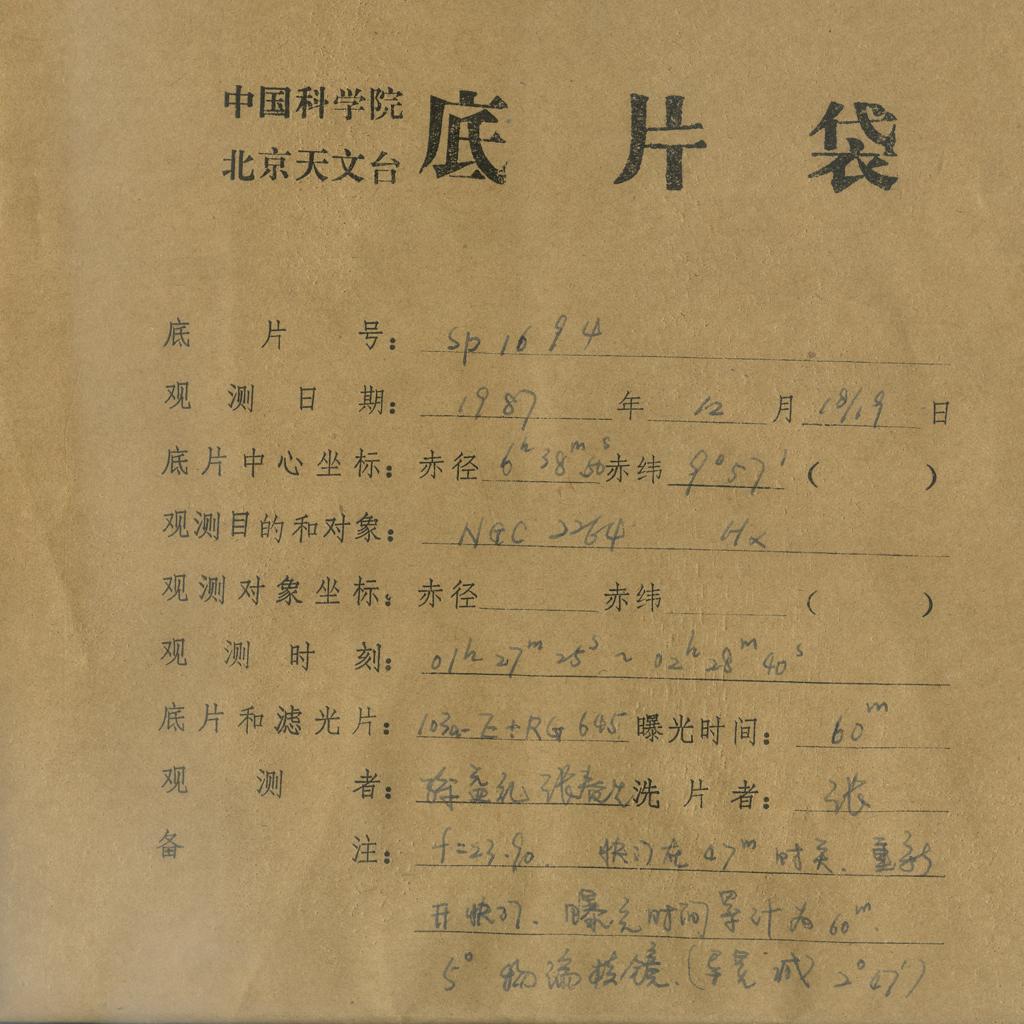 中国科学院
北京天文台
底片袋
底片号: Sp 1694
观测日期: 1987 年 12 月 18/19 日
底片中心坐标: 赤径 6h 38m 50s 赤纬 9°57′ ( )
观测目的和对象: NGC 2264 Hα
观测对象坐标: 赤径 赤纬 ( )
观测时刻: 01h 27m 25s ~ 02h 28m 40s
底片和滤光片: 103a-E+RG 645 曝光时间: 60m
观测者: 张春 洗片者: 张
备注: f=23.90. 快门在 47m 时关. 重新
开快门. 曝光时间累计为 60m.
5° 物端棱镜. ( 减 2°47′)